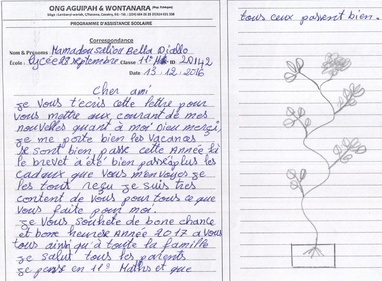 ONG AGUIPAH & WONTANARA
PROGRAMME D'ASSISTANCE SCOLAIRE
Correspondance
Nom & Prénoms Mamadou saliou Bella Diallo
École: Lycée 28 septembre Classe: 11e M ID: 20142
Date: 13.12.2016
Cher ami
Je vous t'ecris cette lettre pour
vous mettre aux courant de mes
nouvelles quant à moi Dieu merçi
Je me porte bien les Vacanas
se sont bien passé cette Année là
le brevet a été bien passé plus les
cadaux que vous m'envoyes je
les tout reçu je suis très
content de vous pour tous ce que
vous faite pour moi.
Je vous souhete de bone chance
et bone heurese Année 2017 a vous
tous ainsi qu'à toute la famille
Je salut tous les parents
Je passe en 11e Maths et que
tous ceux passent bien.